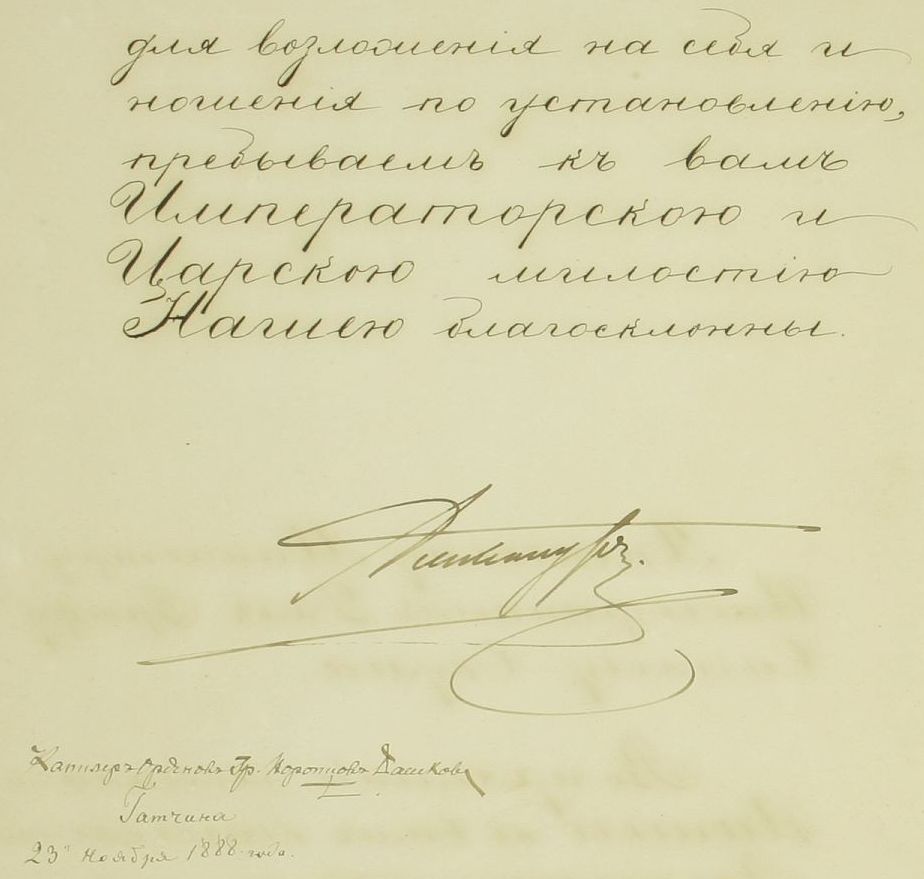 для возложенія на себя и
ношенія по установленію,
пребываемъ къ вамъ
Императорскою и
Царскою милостію
Нашею благосклонны.
Александръ.
Канцлеръ Орденовъ Гр. Воронцовъ Дашковъ
Гатчина
23го Ноября 1888 года.